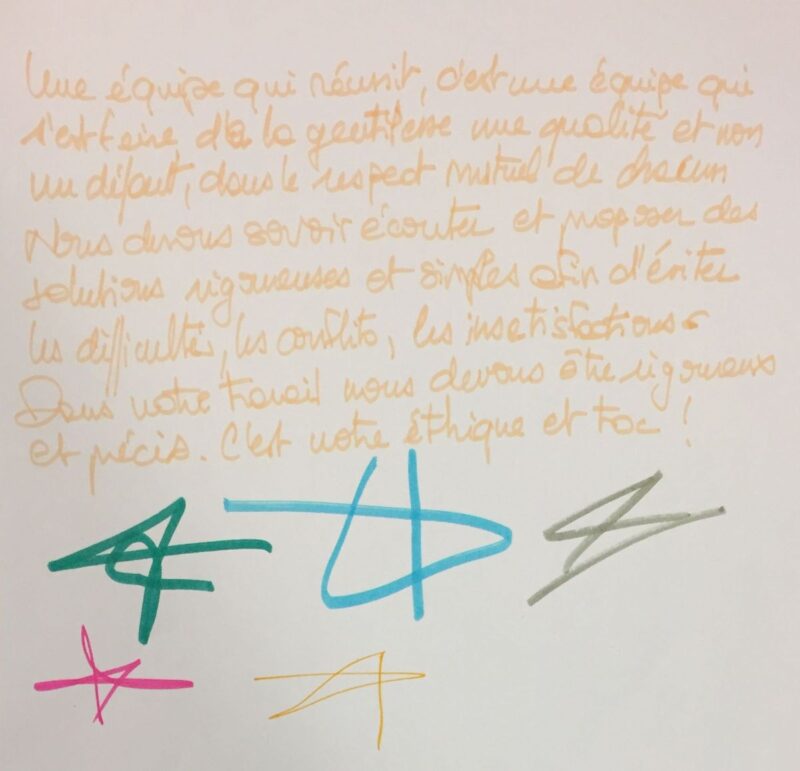 Une équipe qui réussit, c'est une équipe qui
s'est faite de la gentillesse une qualité et non
un défaut, dans le respect mutuel de chacun
Nous devons savoir écouter et proposer des
solutions rigoureuses et simples afin d'éviter
les difficultés, les conflits, les insatisfactions.
Dans notre travail nous devons être rigoureux
et précis. C'est notre éthique et toc !